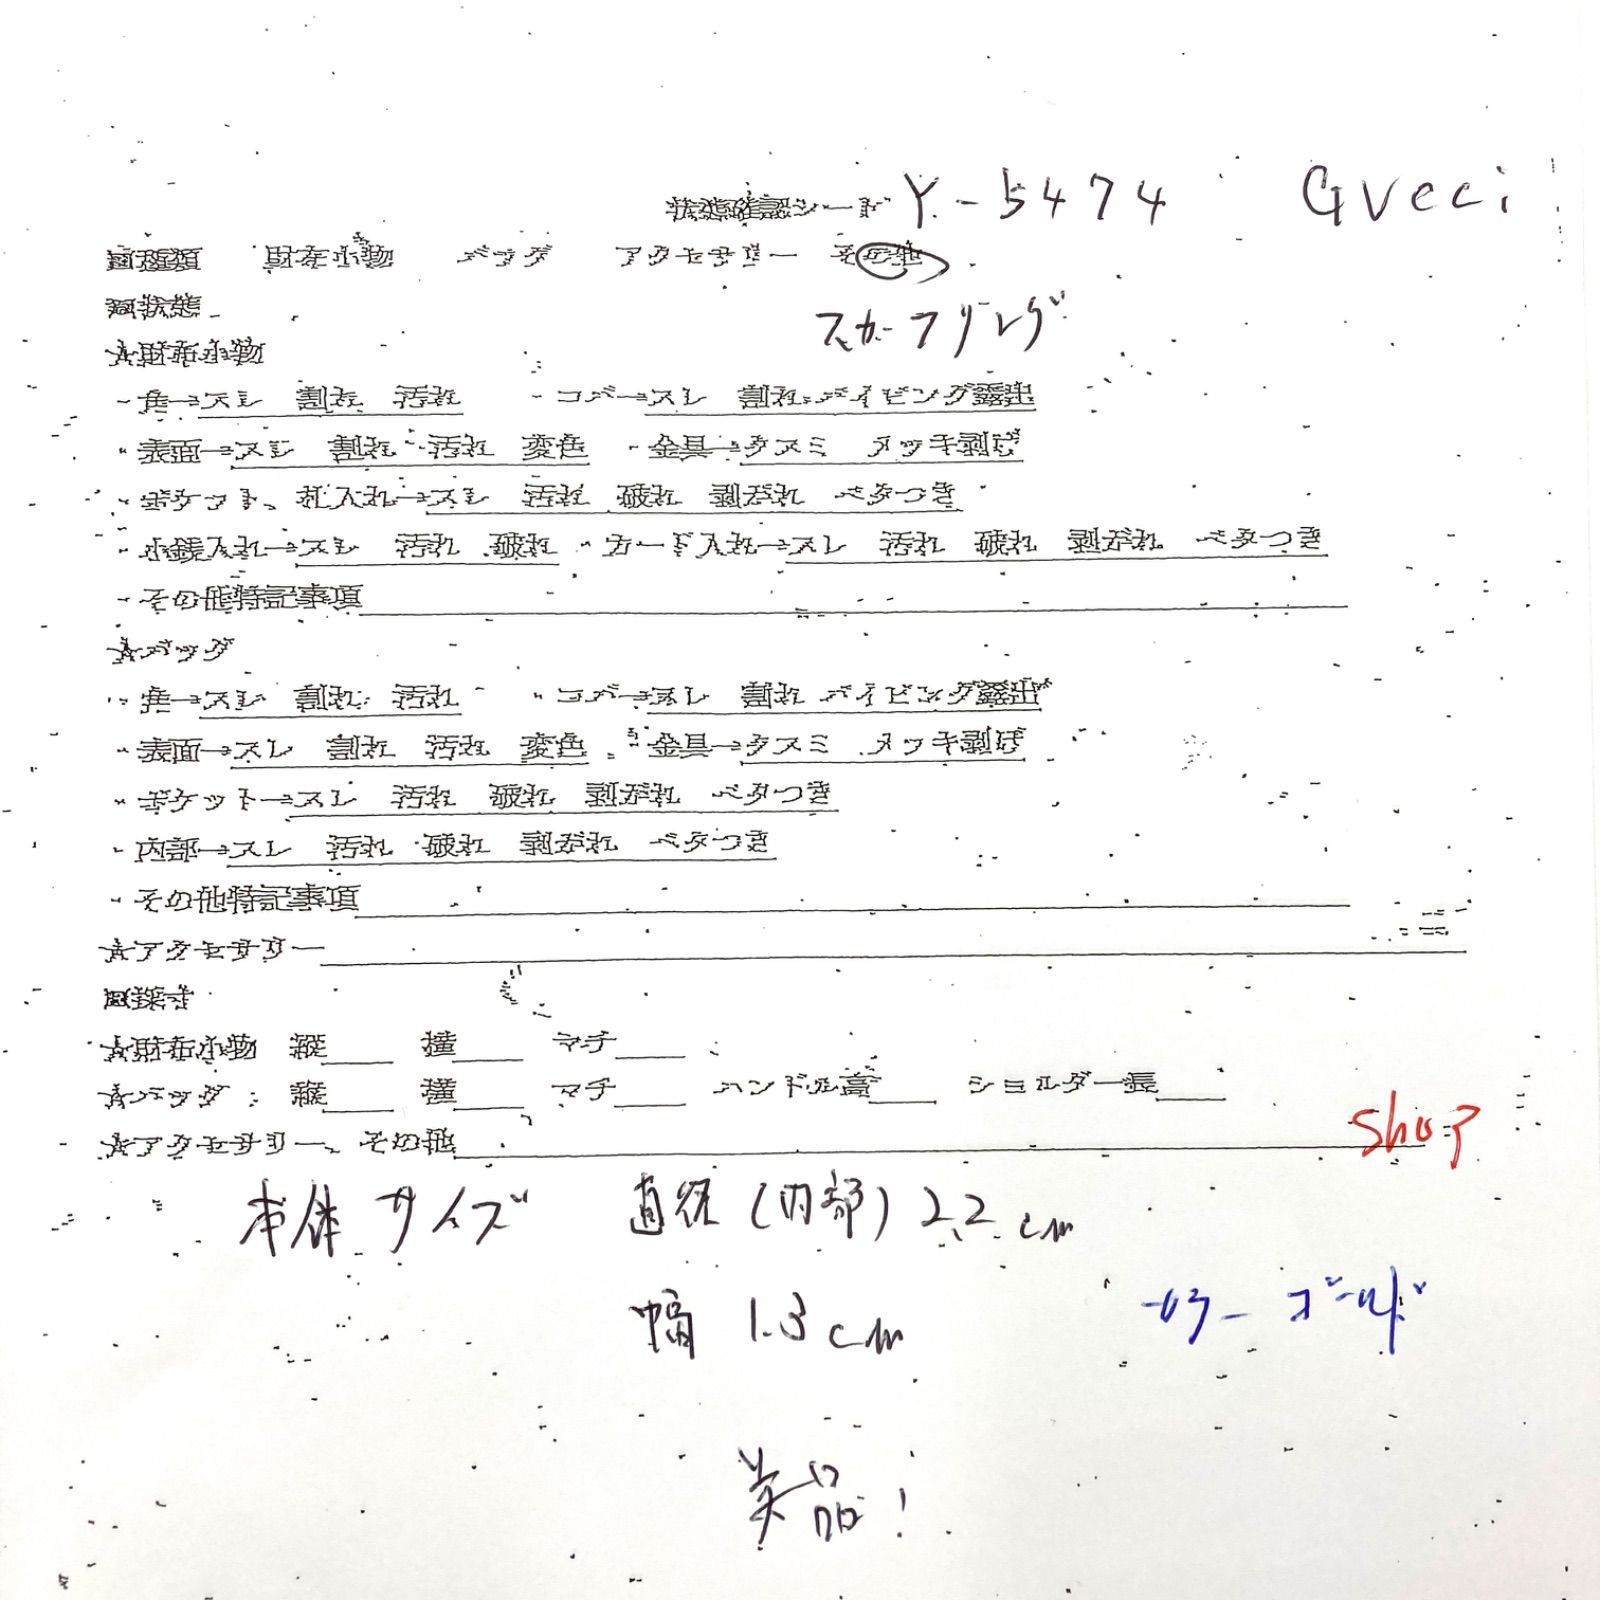 状態確認シート Y-5474 Gucci
回種類 財布小物 バッグ アクセサリー その他
スカーフリング
回状態
☆財布小物
・角→スレ 割れ 汚れ ・コバ→スレ 割れ パイピング露出
・表面→スレ 割れ 汚れ 変色 ・金具→クスミ メッキ剥げ
・ポケット、札入れ→スレ 汚れ 破れ 剥がれ ベタつき
・小銭入れ→スレ 汚れ 破れ ・カード入れ→スレ 汚れ 破れ 剥がれ ベタつき
・その他特記事項
☆バッグ
・角→スレ 割れ 汚れ ・コバ→スレ 割れ パイピング露出
・表面→スレ 割れ 汚れ 変色 ・金具→クスミ メッキ剥げ
・ポケット→スレ 汚れ 破れ 剥がれ ベタつき
・内部→スレ 汚れ 破れ 剥がれ ベタつき
・その他特記事項
☆アクセサリー
回採寸
☆財布小物 縦 横 マチ
☆バッグ 縦 横 マチ ハンドル高 ショルダー長
☆アクセサリー、その他
shop
本体サイズ 直径(内部) 2.2cm
幅 1.3cm
カラー ゴールド
美品!